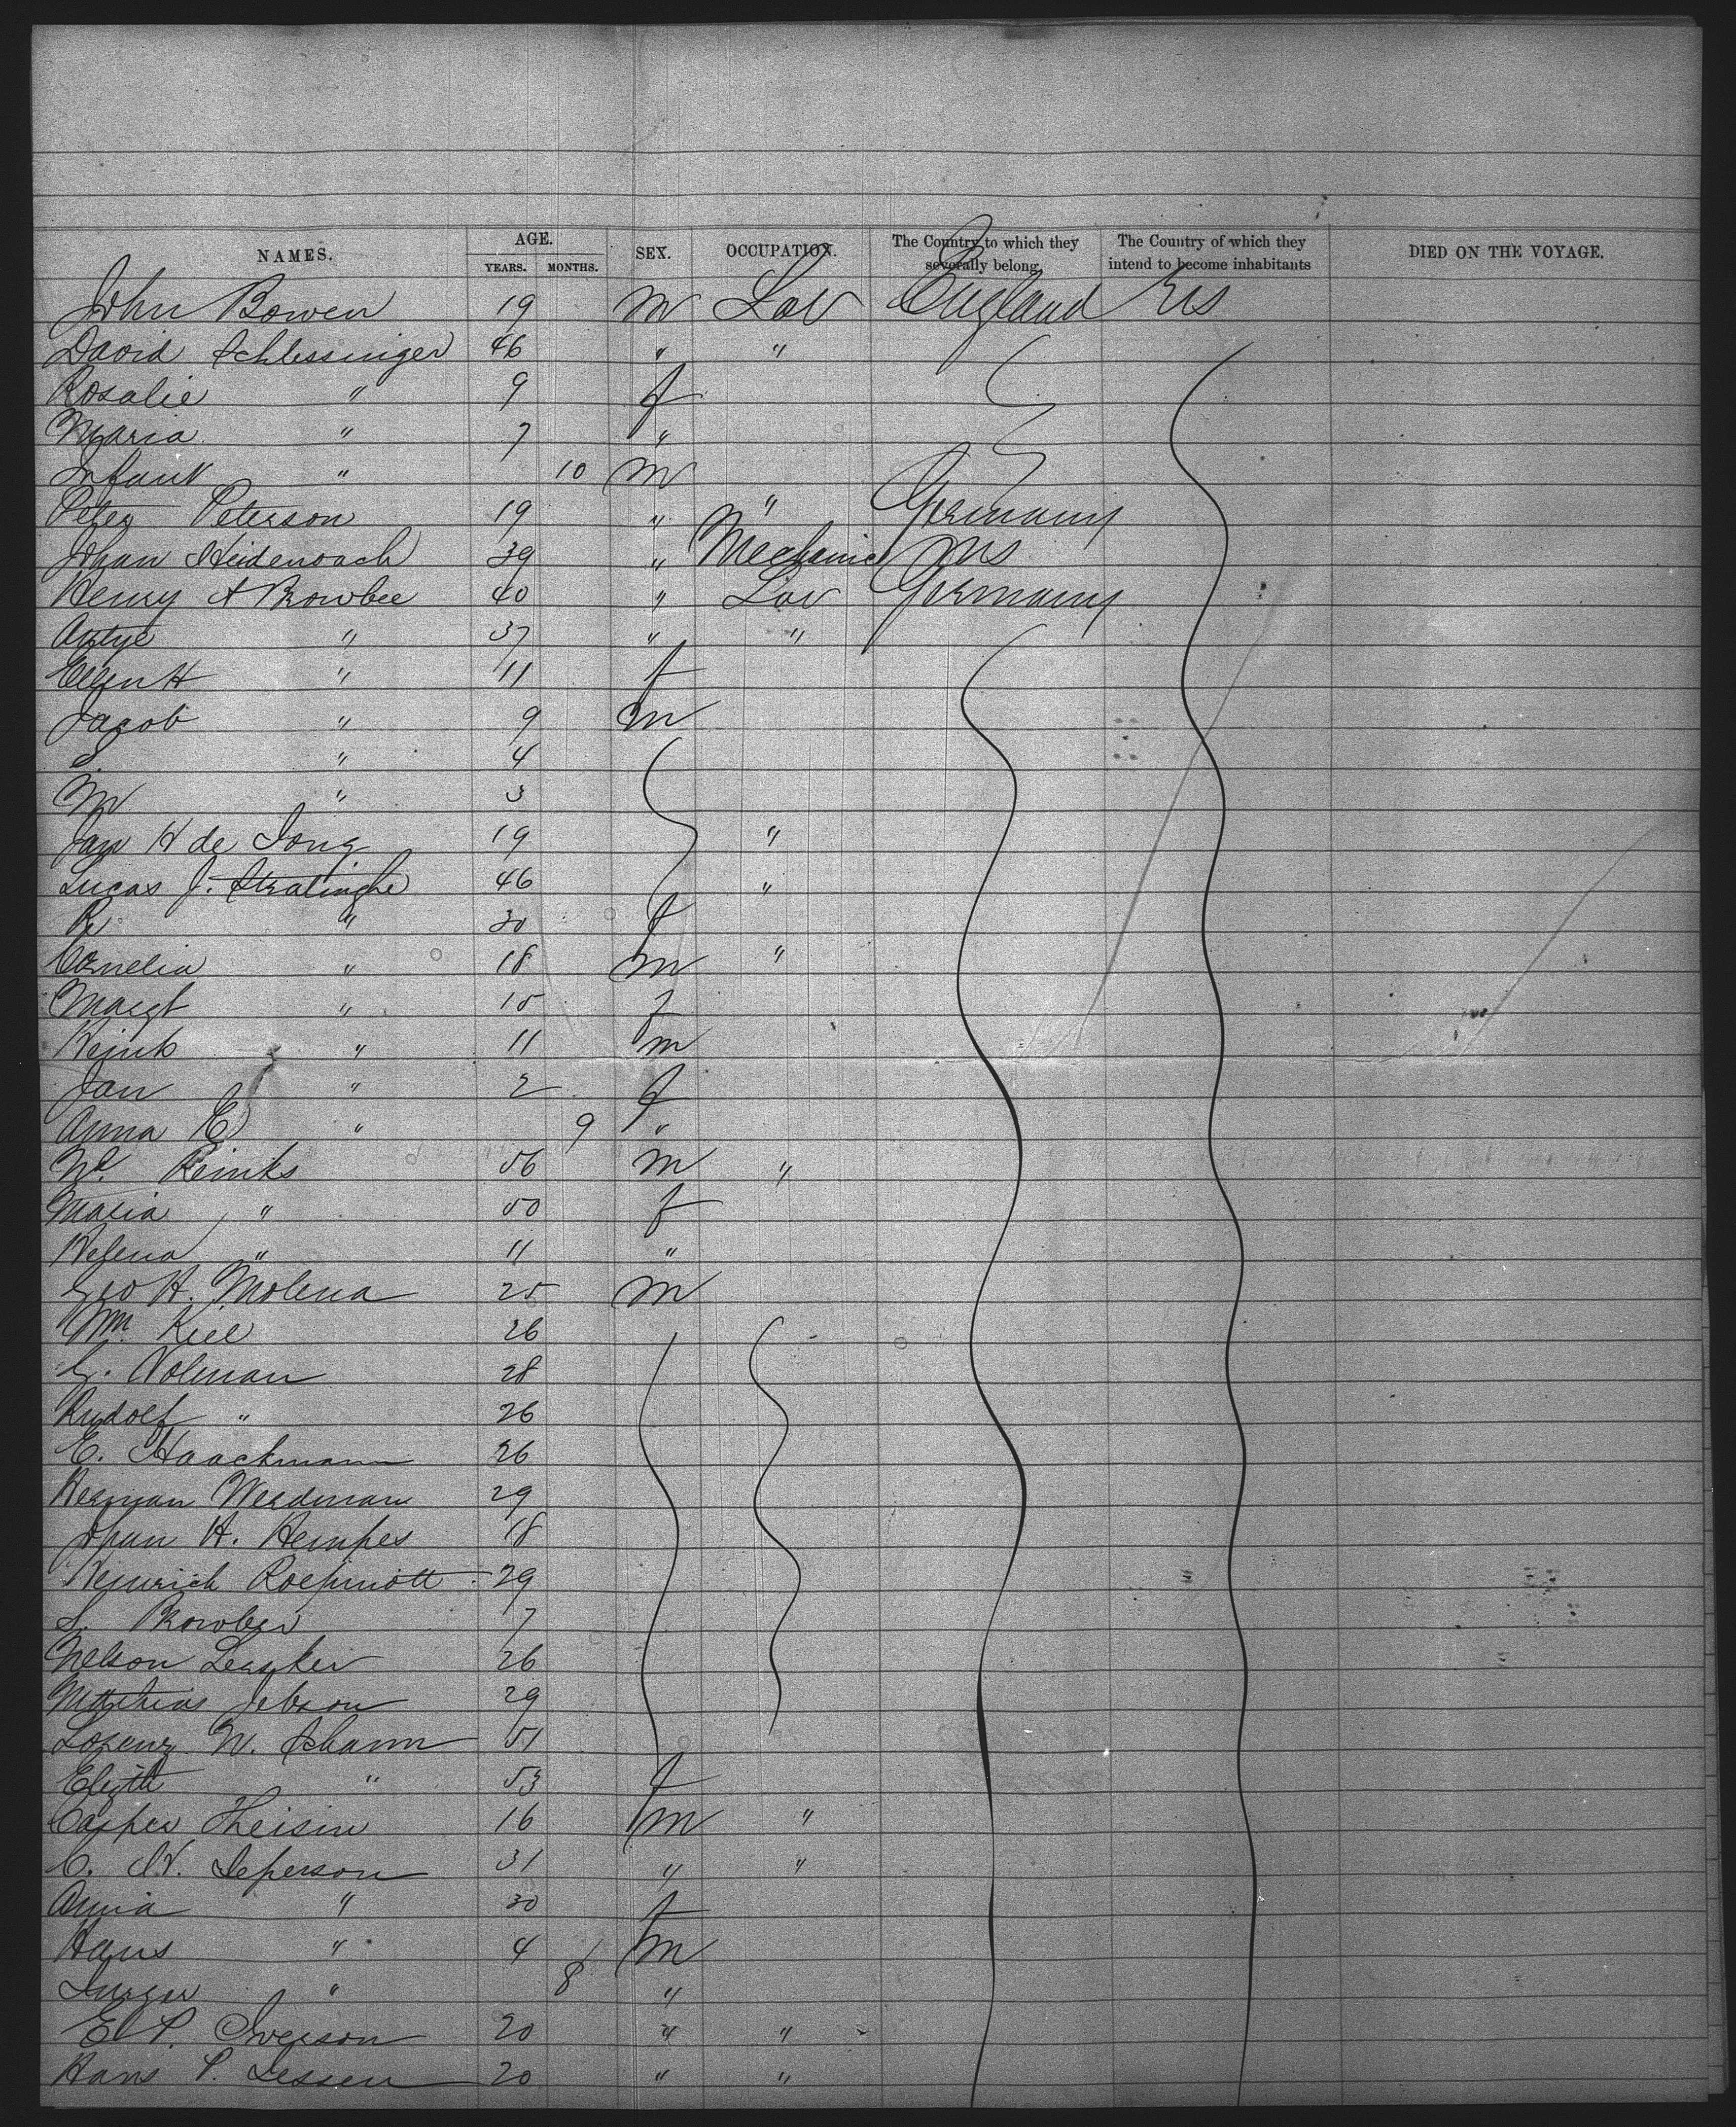 NAMES. AGE. YEARS. MONTHS. SEX. OCCUPATION. The Country to which they severally belong. The Country of which they intend to become inhabitants DIED ON THE VOYAGE.
John Bowen 19 m Lab England US
David Schlessinger 46 " "
Rosalie " 9 f
Maria " 7 "
Infant " 10 m
Peter Peterson 19 " " Germany
Johan 39 " Mechanic US
Henry A Browbee 40 " Lab Germany
Antye " 37 " "
Ellen H " 11 f
Jacob " 9 m
S " 4
M " 3
Jan H de Jong 19 "
Lucas J. Stratinghe 46 "
R " 30 f
Cornelia " 18 m "
Margt " 15 f
Heink " 11 m
Jan " 2 f
Anna E " 9 "
Wm Reinks 56 m "
Maria " 50 f
Helena " 11 "
Geo H. Molena 25 m
Wm Kiel 26
G. Nolman 28
Rudolf " 26
E. Haackmann 26
Herman Werdman 29
Johan H. Hempes 18
Heinrich 29
S. Browber 7
Nelson 26
Mathias Jebson 29
Lorenz N. Schamm 51
" 53 f
Casper Theisin 16 m "
C. N. Jeperson 31 " "
Annia " 30 f
Hans " 4 m
" 8 "
E P. Iverson 20 " "
Hans P. Lessen 20 " "